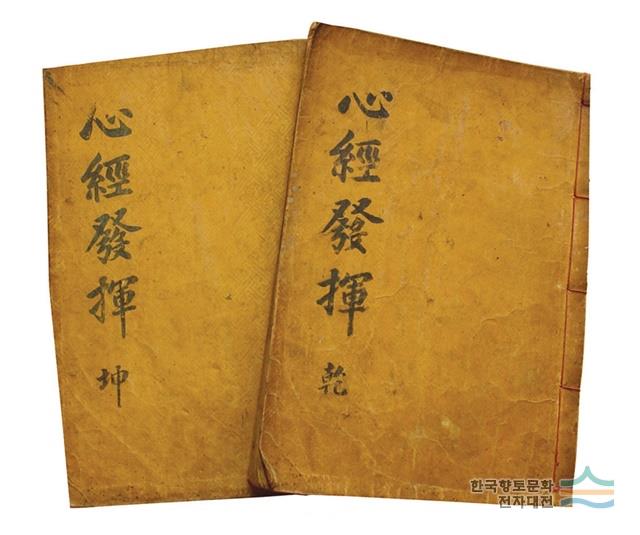 心經發揮
乾
心經發揮
坤
한국향토문화
전자대전